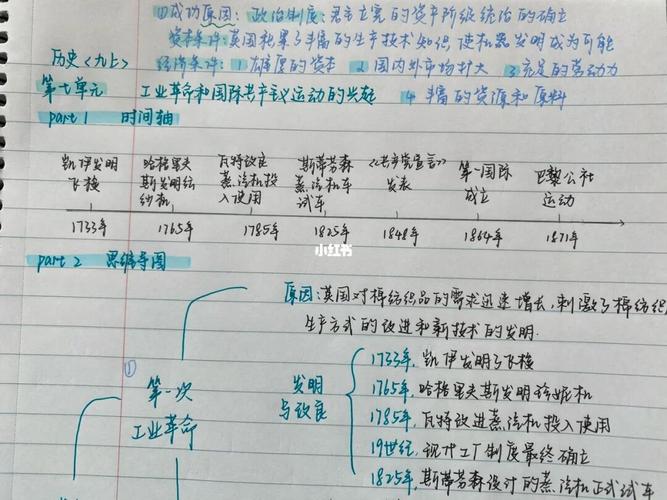 ①成功原因：政治制度：君主立宪的资产阶级统治的确立
资本条件：英国积累了丰富的生产技术知识 使机器发明成为可能
历史〈九上〉
经济条件：1 雄厚的资本 2 国内外市场扩大 3 充足的劳动力
第七单元 工业革命和国际共产主义运动的兴起 4 丰富的资源和原料
part 1 时间轴
凯伊发明飞梭 哈格里夫斯发明纺纱机 瓦特改良蒸汽机投入使用 斯蒂芬森蒸汽机车试车 《共产党宣言》发表 第一国际成立 巴黎公社运动
1733年 1765年 1785年 1825年 1848年 1864年 1871年
小红书
part 2 思维导图
原因：英国对棉纺织品的需求迅速增长，刺激了棉纺织
生产方式的改进和新技术的发明.
①
第一次
工业革命
发明
与改良
1733年，凯伊发明了飞梭
1765年，哈格里夫斯发明珍妮机
1785年，瓦特改进蒸汽机投入使用
19世纪，现代工厂制度最终确立
1825年，斯蒂芬森设计的蒸汽机正式试车